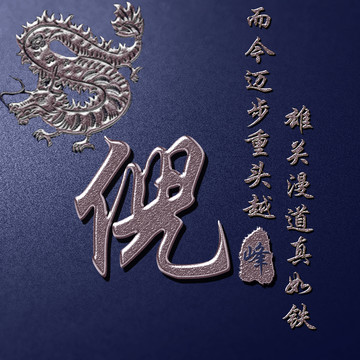 雄关漫道真如铁
而今迈步重头越
倪
峰